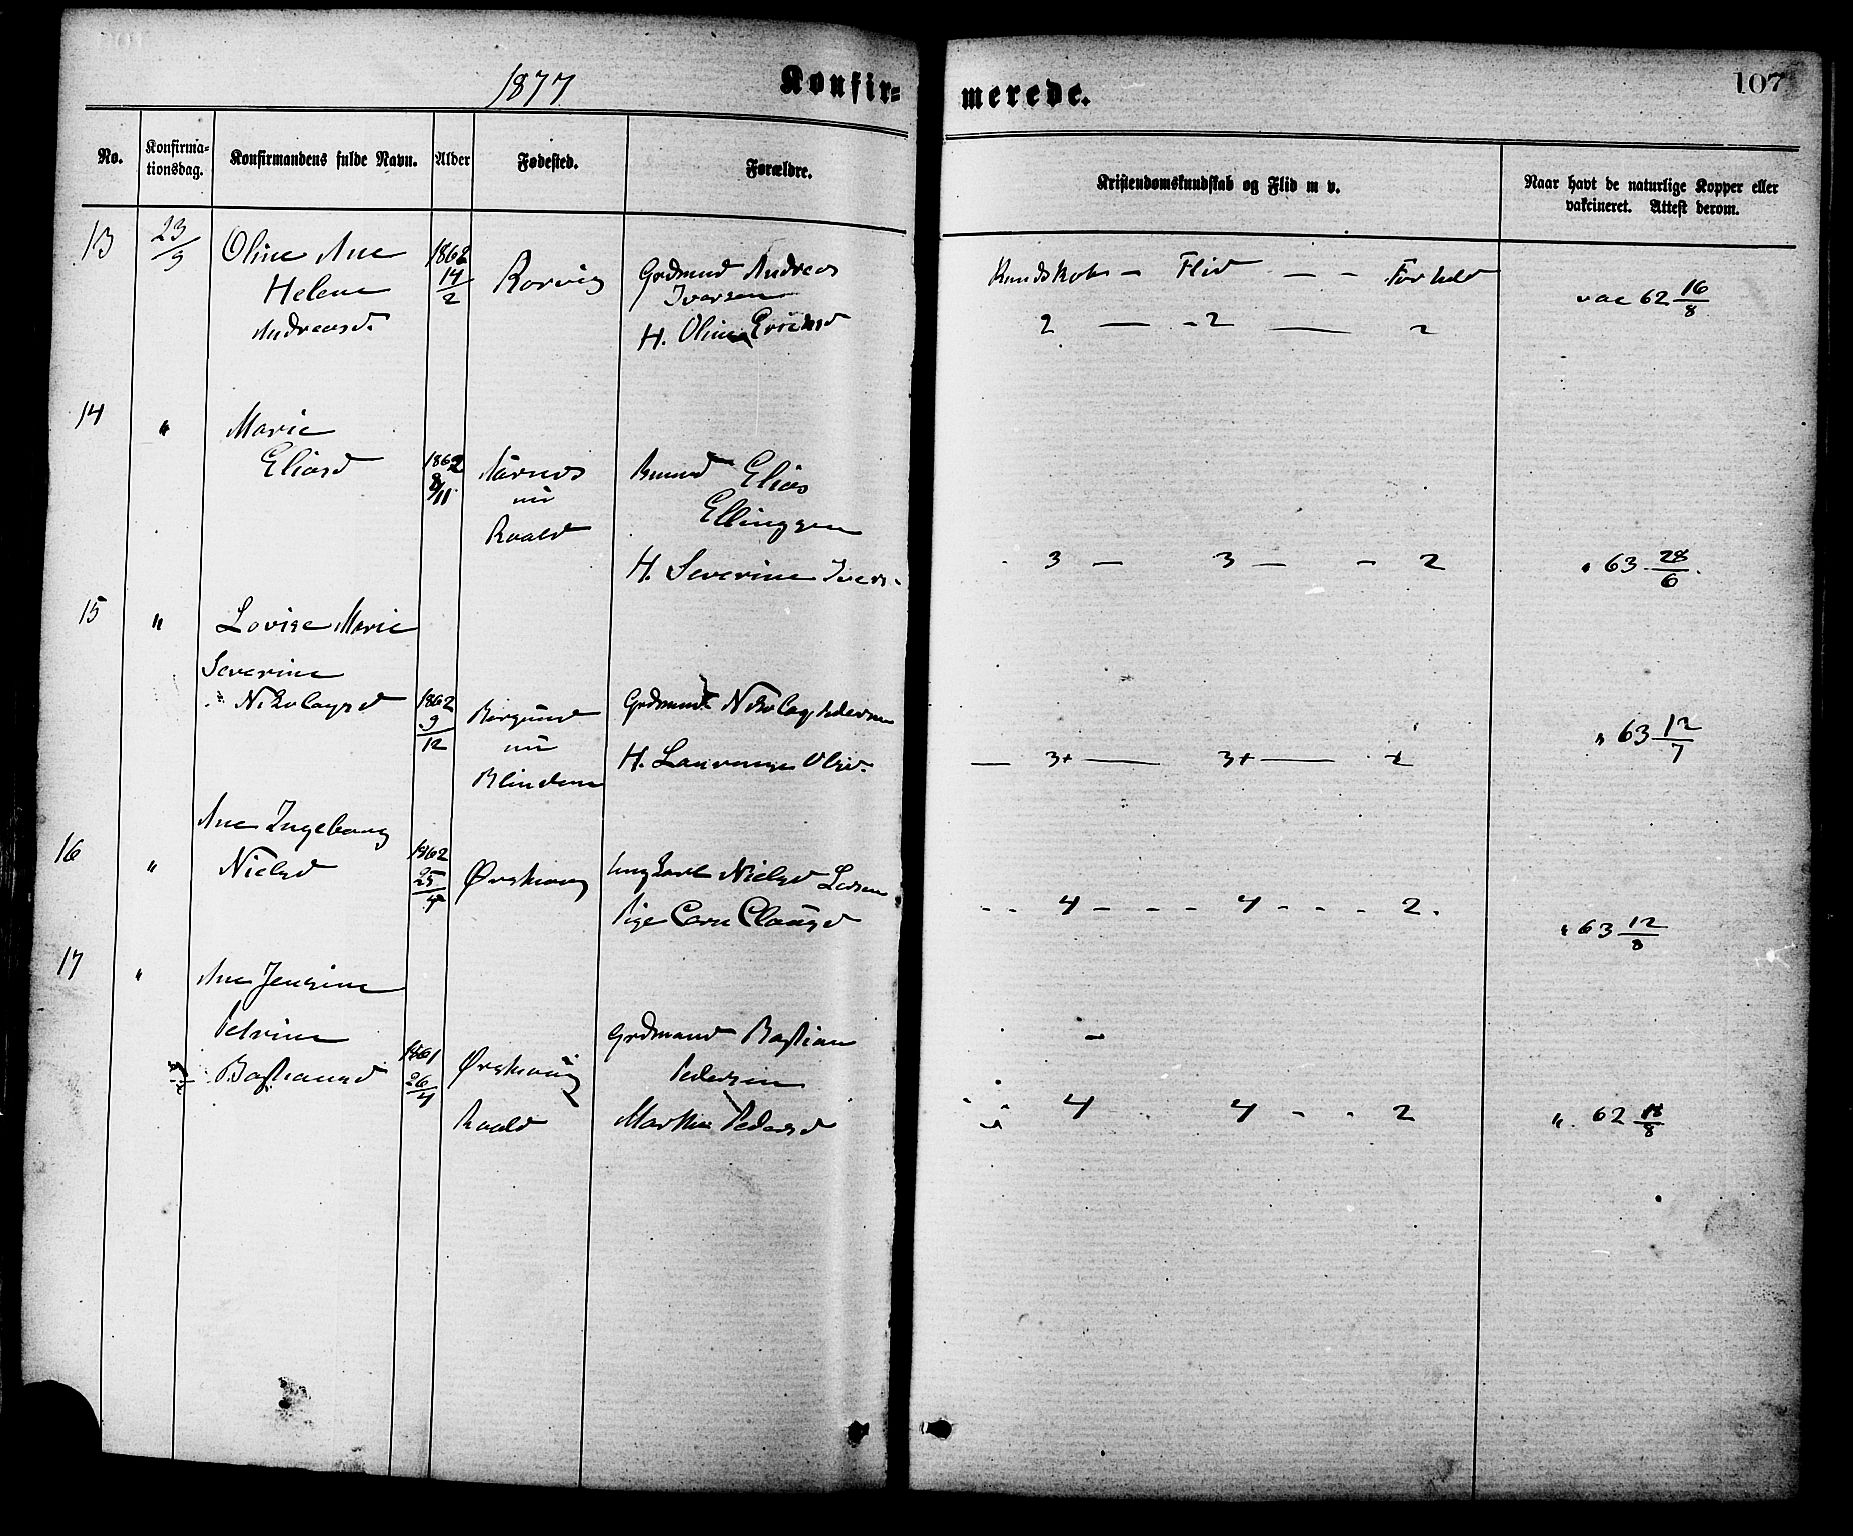 1877 Konfir=
merede. 107
No. Konfirma-
tionsdag. Konfirmandens fulde Navn. Alder Fødested. Forældre. Kristendomskundskab og Flid m v. Naar havt de naturlige Kopper eller
vakcineret. Attest derom.
13 23/9 Oline Ane 1862
Helene 14/2 Rorvig Grdmand Andreas
Iversen
Andreasd. H. Oline
Kundskab — Flid — — Forhold
2 — -2 — 2 vac 62 16/8
14 " Marie
Eliasd 1862
8/11 Aarnes
nu
Roald Elias
Ellingsen
H. Severine Ivers.
3 — 3 — - 2 " 63 28/6
15 " Lovise Marie
Severine
Nikolaysd 1862
9/12 Borgund
nu
Blindem Grdmand Nikolay Pedersen
H. Laurense Olsd.
— 3+ — 3+ — 2 " 63 12/7
Ane Ingeborg
16 " Nielsd 1862
25/4 Ørskoug Ungkarl Niels
Pige Clausd
-- 4 --- 4 --- 2. " 63 12/8
17 " Ane Jensine
Petrine
Bastiansd 1861
26/4 Ørskoug
Roald Grdmand Bastian
Pedersen
Marthe Pedersd
4 4 - - 2 " 62 18/8